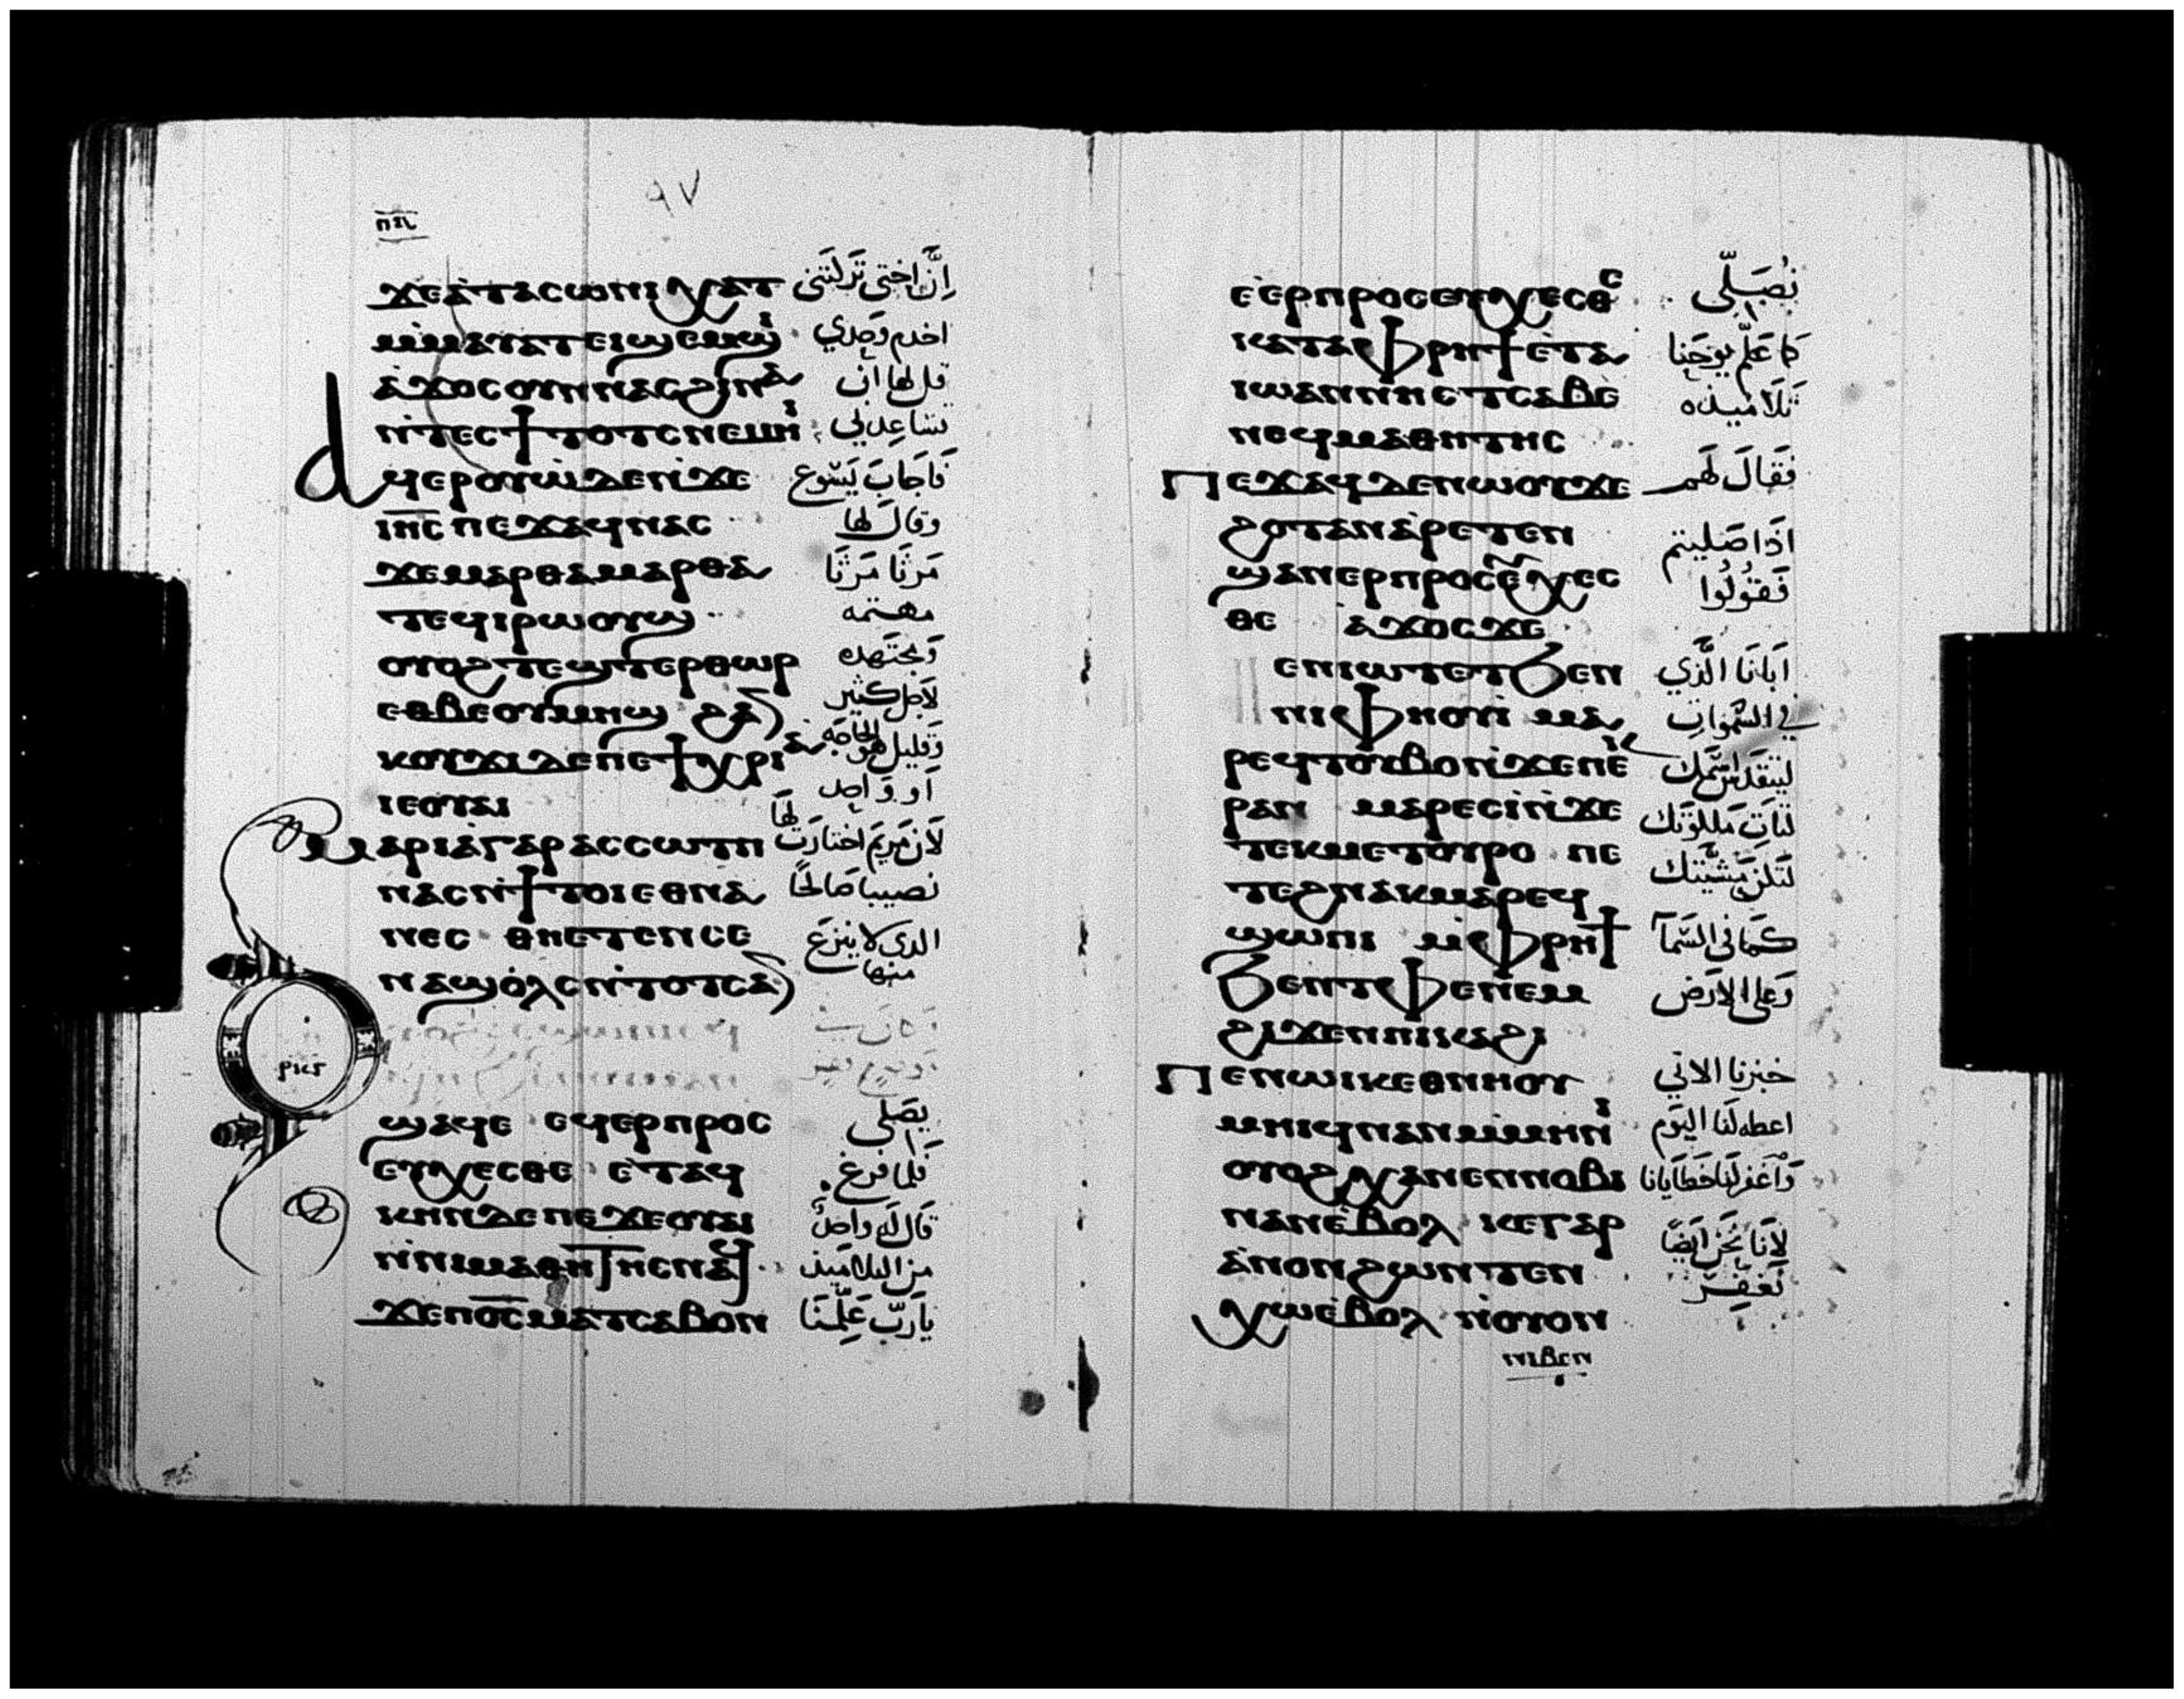 ٩٧
ϫⲉⲁ̀ⲧⲁⲥⲱⲛⲓⲭⲁⲧ إِنَّ اختى تَرَكَتنى
ⲙ̀ⲙⲁⲩⲁⲧⲉⲓϣⲉⲙϣⲓ اخدم وَحدي
ⲁ̀ϫⲟⲥⲟⲩⲛⲛⲁⲥϩⲓⲛⲁ قل لها ان
ⲛ̀ⲧⲉⲥϯⲧⲟⲧⲥⲛⲉⲙⲏⲓ تسَاعِدني
ⲁϥⲉⲣⲟⲩⲱ̀ⲇⲉⲛ̀ϫⲉ فَاجَابَ يَسُوع
ⲓⲏⲥⲡⲉϫⲁϥⲛⲁⲥ وقالَ لها
ϫⲉⲙⲁⲣⲑⲁⲙⲁⲣⲑⲁ مَرثَا مَرثَا
ⲧⲉϥⲓⲣⲱⲟⲩϣ مهتمه
ⲟⲩⲟϩⲧⲉϣⲧⲉⲣⲑⲱⲣ وَمجتَهده
ⲉⲑⲃⲉⲟⲩⲙⲏϣ ϩⲁⲛ لاجل كثير
ⲕⲟⲩϫⲓⲇⲉⲡⲉⲧⲭⲣⲓⲁ وَقليل هوَ الحَاجَه
ⲓⲉⲟⲩⲁⲓ اَو وَاحد
ⲙⲁⲣⲓⲁ̀ⲅⲁⲣⲁⲥⲥⲱⲧⲡ لاَن مَريَم اختارَت لهَا
ⲛⲁⲥⲛ̀ϯⲧⲟⲓⲉⲑⲛⲁ نصيبا صَالحًا
ⲛⲉⲥ ⲑⲏⲉⲧⲉⲛⲥⲉ الدى لا ينزع
ⲛⲁϣⲟ̀ⲗⲥⲛ̀ⲧⲟⲧⲥⲁⲛ منها
ϣⲁϥⲉ ⲉϥⲉⲣⲡⲣⲟⲥ يصَلى
ⲉⲩⲭⲉⲥⲑⲉ ⲉ̀ⲧⲁϥ فَلما فرغ
ⲕⲏⲛⲇⲉⲡⲉϫⲉⲟⲩⲁⲓ قَال لَه واحدٌ
ⲛ̀ⲛⲓⲙⲁⲑⲏⲧⲏⲥⲛⲁϥ من التلاميذ
ϫⲉⲡⲟⲥⲙⲁⲧⲥⲁⲃⲟⲛ يَارَبّ عَلِّمنَا
ⲉ̀ⲉⲣⲡⲣⲟⲥⲉⲩⲭⲉⲥⲑⲉ نُصَلِّى
ⲕⲁⲧⲁⲫⲣⲏϯⲉ̀ⲧⲁ كما عَلَّم يوحَنا
ⲓⲱⲁⲛⲛⲏⲥⲧⲥⲁⲃⲉ تَلاَميذه
ⲛⲉϥⲙⲁⲑⲏⲧⲏⲥ
ⲡⲉϫⲁϥⲇⲉⲛⲱⲟⲩϫⲉ فَقَالَ لَهم
ϩⲟⲧⲁⲛⲁ̀ⲣⲉⲧⲉⲛ اذَا صَليتم
ϣⲁⲛⲉⲣⲡⲣⲟⲥⲉⲩⲭⲉⲥ فَقوُلُوا
ⲑⲉ ⲁ̀ϫⲟⲥϫⲉ
ⲉⲛⲓⲱⲧⲉⲧϧⲉⲛ اَبَانَا الَّذي
ⲛⲓⲫⲏⲟⲩⲓ̀ ⲙⲁ في السَّموات
ⲣⲉϥⲧⲟⲩⲃⲟⲛ̀ϫⲉⲡⲉⲕ ليتقدس اسمك
ⲣⲁⲛ ⲙⲁⲣⲉⲥⲓ̀ⲛ̀ϫⲉ لتاتِ مَلكوُتك
ⲧⲉⲕⲙⲉⲧⲟⲩⲣⲟ ⲡⲉ لتَكن مَشيَّتك
ⲧⲉϩⲛⲁⲕⲙⲁⲣⲉϥ
ϣⲱⲡⲓ ⲙ̀ⲫⲣⲏϯ كمَا في السَّمآ
ϧⲉⲛⲧⲫⲉⲛⲉⲙ وَعلى الاَرض
ϩⲓϫⲉⲛⲡⲓⲕⲁϩⲓ
ⲡⲉⲛⲱⲓⲕⲉⲑⲛⲏⲟⲩ خبزنا الاتي
ⲙⲏⲓϥⲛⲁⲛⲙ̀ⲙⲏⲛⲓ اعطه لَنا اليَوم
ⲟⲩⲟϩⲭⲁⲛⲉⲛⲛⲟⲃⲓ وَاغفر لَنا خَطَايانا
ⲛⲁⲛⲉ̀ⲃⲟⲗ ⲕⲉⲅⲁⲣ لاَنَا نَحن اَيضًا
ⲁ̀ⲛⲟⲛϩⲱⲛⲧⲉⲛ نَغفِر
ⲭⲱⲉ̀ⲃⲟⲗ ⲛ̀ⲟⲩⲟⲛ
ⲛⲓⲃⲉⲛ